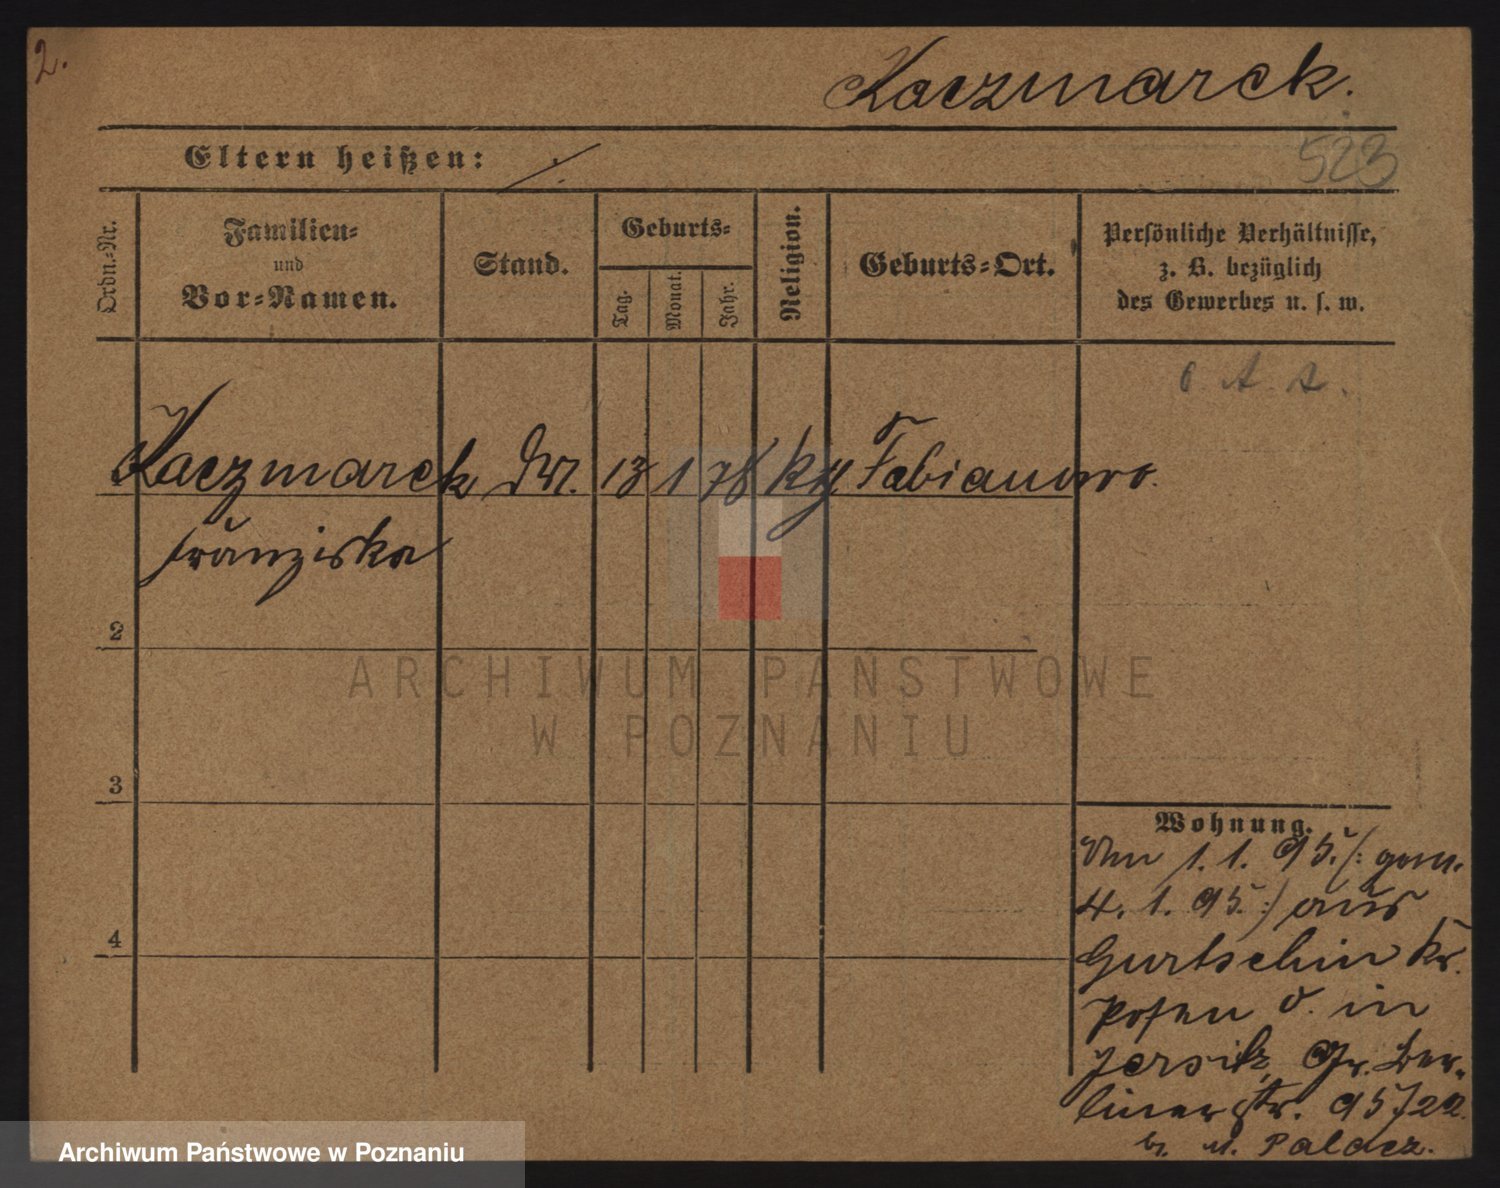 2.
Kaczmarek.
Eltern heißen: ./.
523
Ordn.-Nr.
Familien-
und
Vor-Namen.
Stand.
Geburts-
Tag.
Monat.
Jahr.
Religion.
Geburts-Ort.
Persönliche Verhältnisse,
z. B. bezüglich
des Gewerbes u. s. w.
Kaczmarek 13 1 78 Fabianowo.
Franziska
2
3
4
Wohnung.
1. 1. 95. /: gem.
4. 1. 95. :/ aus
Gurtschin Kr.
Posen O. in
Jersitz, Gr. Ber-
liner str. 95/
b. Palacz.
ARCHIWUM PAŃSTWOWE
W POZNANIU
Archiwum Państwowe w Poznaniu